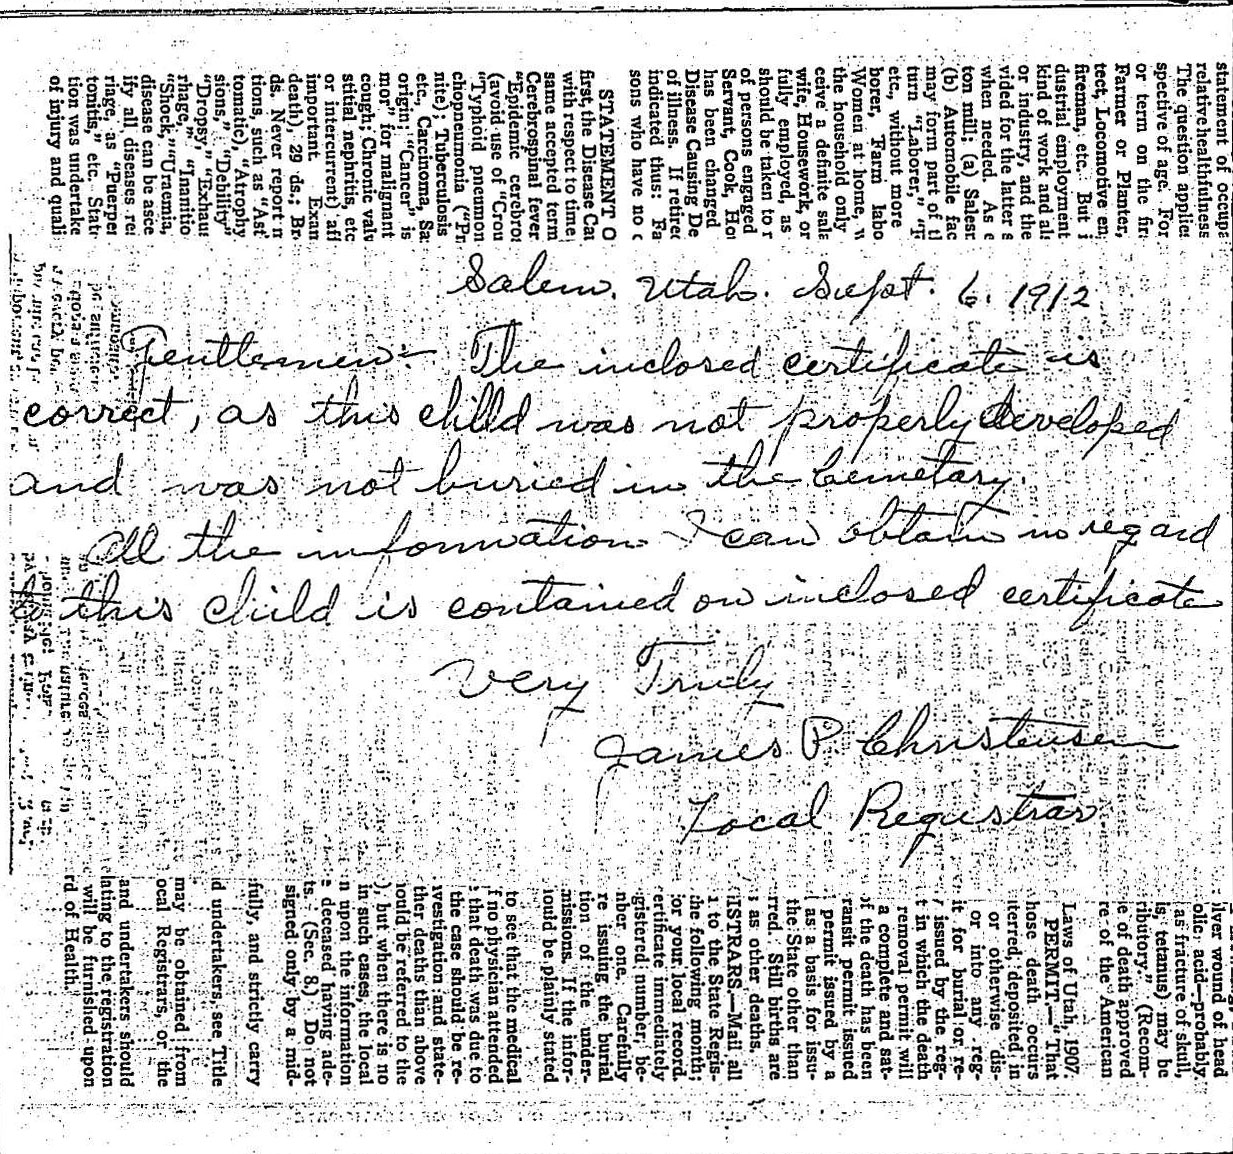 Salem. Utah. Sept. 6. 1912
Gentlemen:- The inclosed certificate is
correct, as this child was not properly developed
and was not buried in the Cemetary.
All the information I can obtain in regard
to this child is contained on inclosed certificate
Very Truly
James P. Christensen
Local Registrar
statement of occupa
relative healthfulness
The question applies
spective of age. For
or term on the fir
Farmer or Planter,
tect, Locomotive en
fireman, etc. But i
dustrial employment
kind of work and als
or industry, and the
vided for the latter s
when needed. As e
ton mill; (a) Salesm
(b) Automobile fac
may form part of th
turn "Laborer," "F
etc., without more
borer, Farm labo
Women at home, w
the household only
ceive a definite sala
wife, Housework, or
fully employed, as
should be taken to r
of persons engaged
Servant, Cook, Hou
has been changed
Disease Causing De
of illness. If retired
indicated thus: Fa
sons who have no o
STATEMENT O
first, the Disease Cau
with respect to time
same accepted term
Cerebrospinal fever
"Epidemic cerebros
(avoid use of "Crou
"Typhoid pneumon
chopneumonia ("Pn
nite); Tuberculosis
etc., Carcinoma, Sa
origin; "Cancer" is
mor" for malignant
cough; Chronic valv
stitial nephritis, etc
or intercurrent) aff
important. Exam
death), 29 ds.; Bro
ds. Never report m
tions, such as "Ast
tomatic), "Atrophy
sions," "Debility"
"Dropsy," "Exhaus
rhage," "Inanitio
"Shock," "Uraemia,
disease can be asce
ify all diseases res
riage, as "Puerper
tonitis," etc. State
tion was undertake
of injury and quali
lver wound of head
olic acid—probably
as fracture of skull,
is, tetanus) may be
tributory." (Recom-
e of death approved
re of the American
Laws of Utah, 1907.
PERMIT—"That
hose death occurs
terred, deposited in
or otherwise dis-
or into any reg-
it for burial or re-
issued by the reg-
t in which the death
removal permit will
a complete and sat-
of the death has been
ransit permit issued
permit issued by a
as a basis for issu-
the State other than
rred. Still births are
s as other deaths.
ISTRARS.—Mail all
to the State Regis-
the following month;
or your local record.
ertificate immediately
gistered number; be-
nber one. Carefully
re issuing the burial
tion of the under-
missions. If the infor-
ould be plainly stated
to see that the medical
f no physician attended
that death was due to
the case should be re-
vestigation and state-
ther deaths than above
ould be referred to the
), but when there is no
in such cases, the local
n upon the information
e deceased having ade-
ts. (Sec. 8.) Do not
signed only by a mid-
fully, and strictly carry
d undertakers, see Title
may be obtained from
ocal Registrars, or the
and undertakers should
elating to the registration
will be furnished upon
rd of Health.